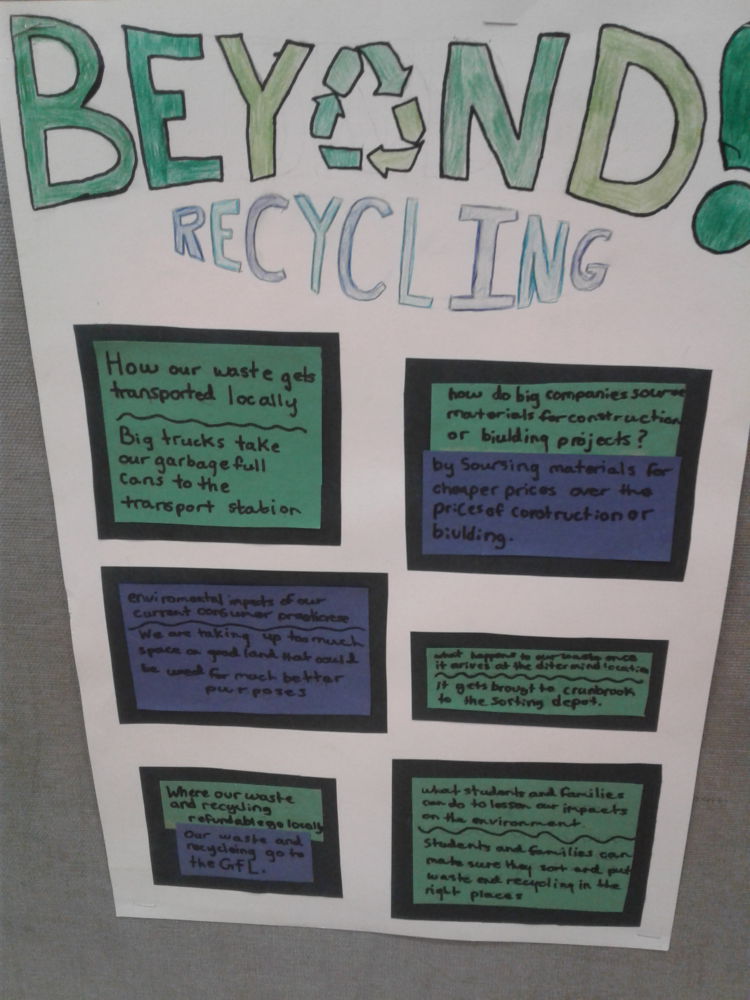 BEYOND!
RECYCLING
How our waste gets
transported locally
Big trucks take
our garbage full
cans to the
transport station
how do big companies sourse
materials for construction
or biulding projects?
by Soursing materials for
cheaper prices over the
prices of construction or
biulding.
enviromental impacts of our
current consumer
We are taking up too much
space on good land that could
be used for much better
purposes
what happens to our waste once
it arrives at the ditermind location
it gets brought to cranbrook
to the sorting depot.
Where our waste
and recycling
refundable go locally
Our waste and
recycleing go to
the GFL.
what students and families
can do to lesson our impacts
on the environment.
Students and families can
make sure they sort and put
waste and recycling in the
right places